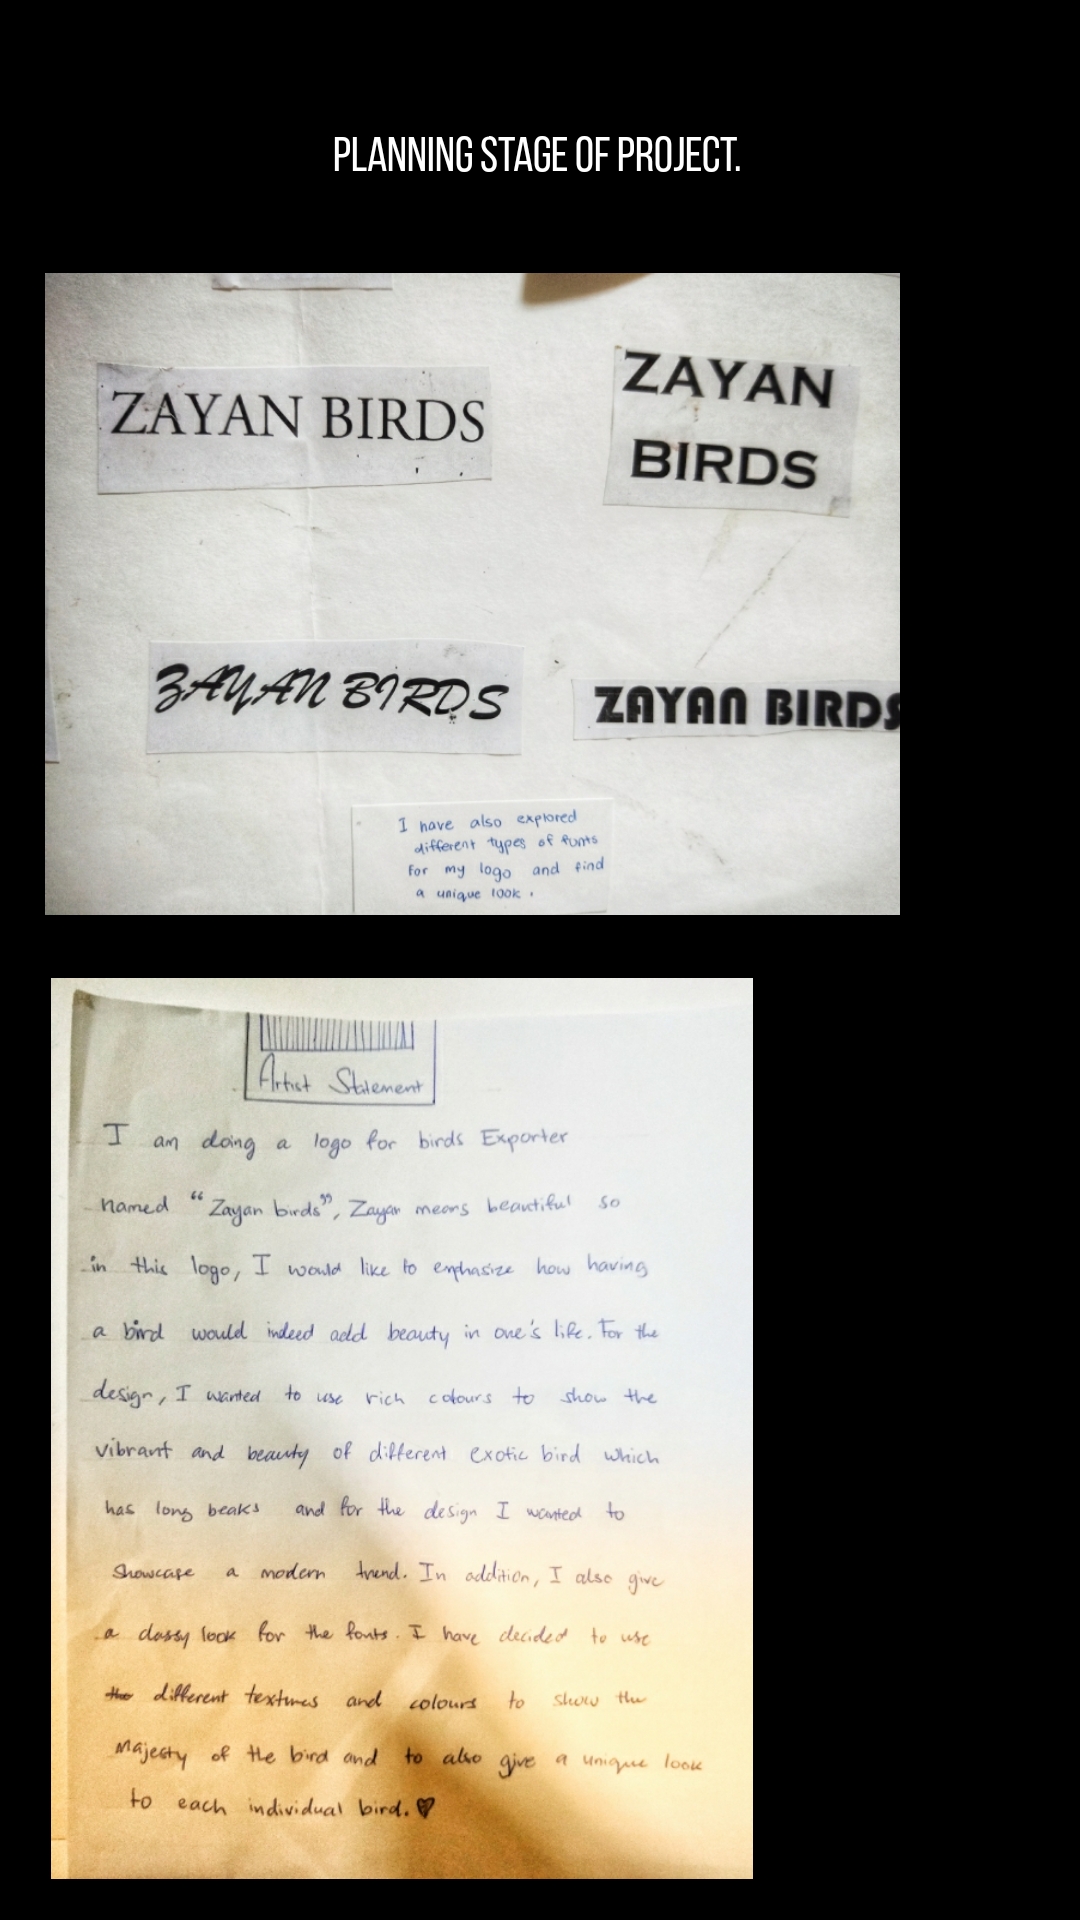 PLANNING STAGE OF PROJECT.
ZAYAN BIRDS
ZAYAN
BIRDS
ZAYAN BIRDS
ZAYAN BIRDS
I have also explored
different types of funts
for my logo and find
a unique look.
Artist Statement
I am doing a logo for birds Exporter
named "Zayan birds", Zayan means beautiful so
in this logo, I would like to emphasize how having
a bird would indeed add beauty in one's life. For the
design, I wanted to use rich colours to show the
vibrant and beauty of different exotic bird which
has long beaks and for the design I wanted to
showcase a modern trend. In addition, I also give
a classy look for the fonts. I have decided to use
the different textures and colours to show the
majesty of the bird and to also give a unique look
to each individual bird.